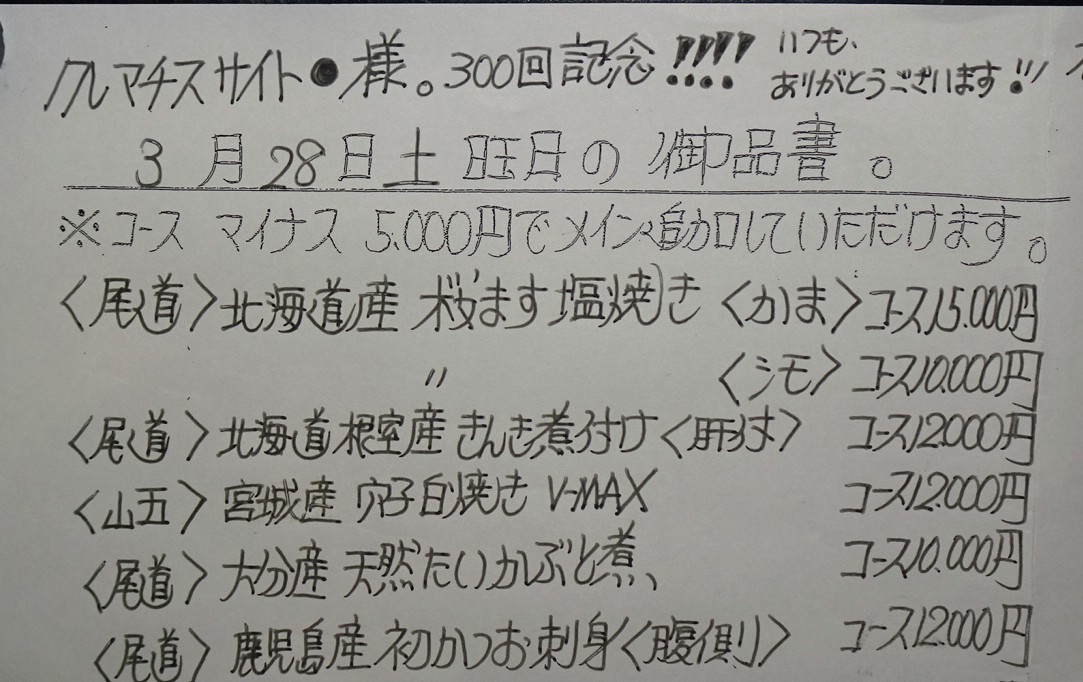 クレマチスサイト●様。300回記念!!!! いつも、
ありがとうございます!!!
3月28日土曜日の御品書。
※コース マイナス 5.000円でメイン追加していただけます。
〈尾道〉北海道産 桜ます塩焼き〈かま〉コース15.000円
〃 〈シモ〉コース10.000円
〈尾道〉北海道根室産 きんき煮付け〈肝付〉 コース12.000円
〈山五〉宮城産 穴子白焼き V-MAX コース12.000円
〈尾道〉大分産 天然たいかぶと煮、 コース10.000円
〈尾道〉鹿児島産 初かつお刺身〈腹側〉 コース12.000円